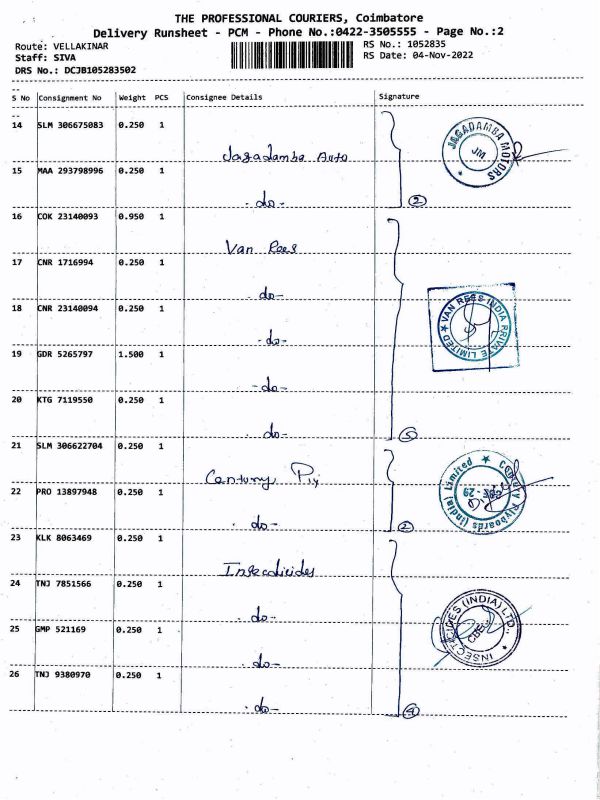 THE PROFESSIONAL COURIERS, Coimbatore
Delivery Runsheet - PCM - Phone No.:0422-3505555 - Page No.:2
Route: VELLAKINAR
RS No.: 1052835
Staff: SIVA
RS Date: 04-Nov-2022
DRS No.: DCJB105283502
S No Consignment No Weight PCS Consignee Details Signature
14 SLM 306675083 0.250 1
Jagadamba Auto
JAGADAMBA MOTORS
JM
15 MAA 293798996 0.250 1
-do-
2
16 COK 23140093 0.950 1
Van Rees
17 CNR 1716994 0.250 1
-do-
18 CNR 23140094 0.250 1
-do-
VAN REES INDIA PRIVATE LIMITED
19 GDR 5265797 1.500 1
-do-
20 KTG 7119550 0.250 1
-do-
5
21 SLM 306622704 0.250 1
Century Ply
Century Plyboards (India) Limited
CBE - 29
22 PRO 13897948 0.250 1
-do-
2
23 KLK 8063469 0.250 1
Insecticides
24 TNJ 7851566 0.250 1
-do-
INSECTICIDES (INDIA) LTD.
CBE
25 GMP 521169 0.250 1
-do-
26 TNJ 9380970 0.250 1
-do-
4